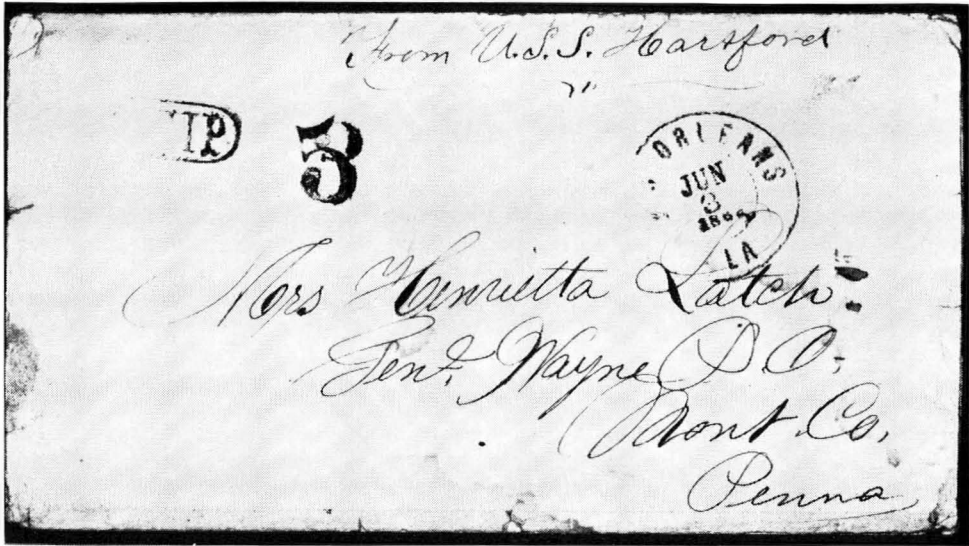 From U.S.S. Hartford
IP
3
ORLEANS
JUN
3
LA
Mrs Henrietta Latch
Genl Wayne P. O.
Mont. Co.
Penna